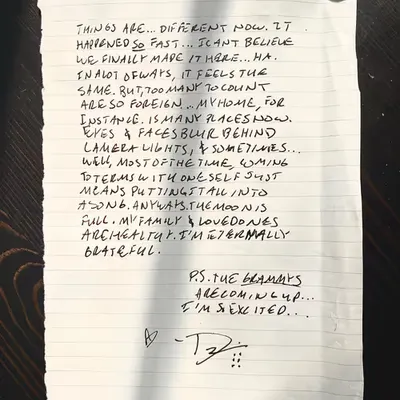 THINGS ARE... DIFFERENT NOW. IT
HAPPENED SO FAST... I CANT BELIEVE
WE FINALLY MADE IT HERE... HA.
IN A LOT OF WAYS, IT FEELS THE
SAME. BUT, TOO MANY TO COUNT
ARE SO FOREIGN... MY HOME, FOR
INSTANCE. IS MANY PLACES NOW.
EYES & FACES BLUR BEHIND
CAMERA LIGHTS, & SOMETIMES...
WELL, MOST OF THE TIME, COMING
TO TERMS WITH ONESELF JUST
MEANS PUTTING IT ALL INTO
A SONG. ANYWAYS. THE MOON IS
FULL. MY FAMILY & LOVED ONES
ARE HEALTHY. I'M ETERNALLY
GRATEFUL.
P.S. THE GRAMMYS
ARE COMING UP...
I'M SO EXCITED...